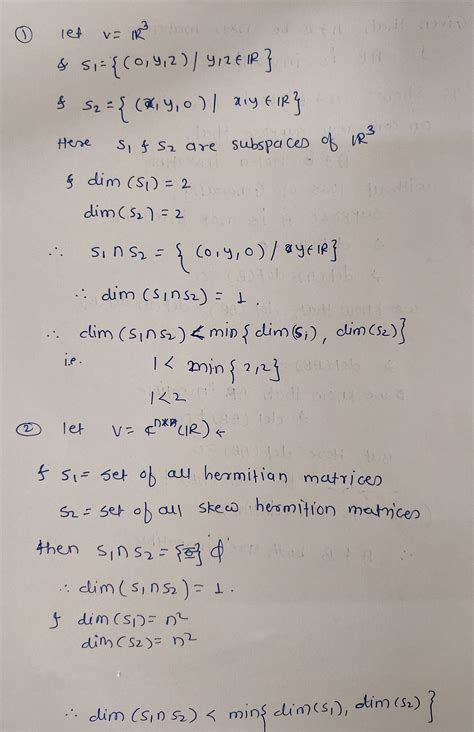 ① let V = ℝ³
& S₁ = {(0,y,z) / y,z ∈ ℝ}
& S₂ = {(x,y,0) / x,y ∈ ℝ}
Here S₁ & S₂ are subspaces of ℝ³
& dim(S₁) = 2
dim(S₂) = 2
∴ S₁∩S₂ = {(0,y,0) / y∈ℝ}
∴ dim(S₁∩S₂) = 1.
∴ dim(S₁∩S₂) < min{dim(S₁), dim(S₂)}
i.e. 1 < min{2,2}
1<2
② let V = ℂⁿˣⁿ(ℝ)
& S₁ = set of all hermitian matrices
S₂ = set of all skew hermition matrices
then S₁∩S₂ = ϕ
∴ dim(S₁∩S₂) = 1.
& dim(S₁) = n²
dim(S₂) = n²
∴ dim(S₁∩S₂) < min{dim(S₁), dim(S₂)}